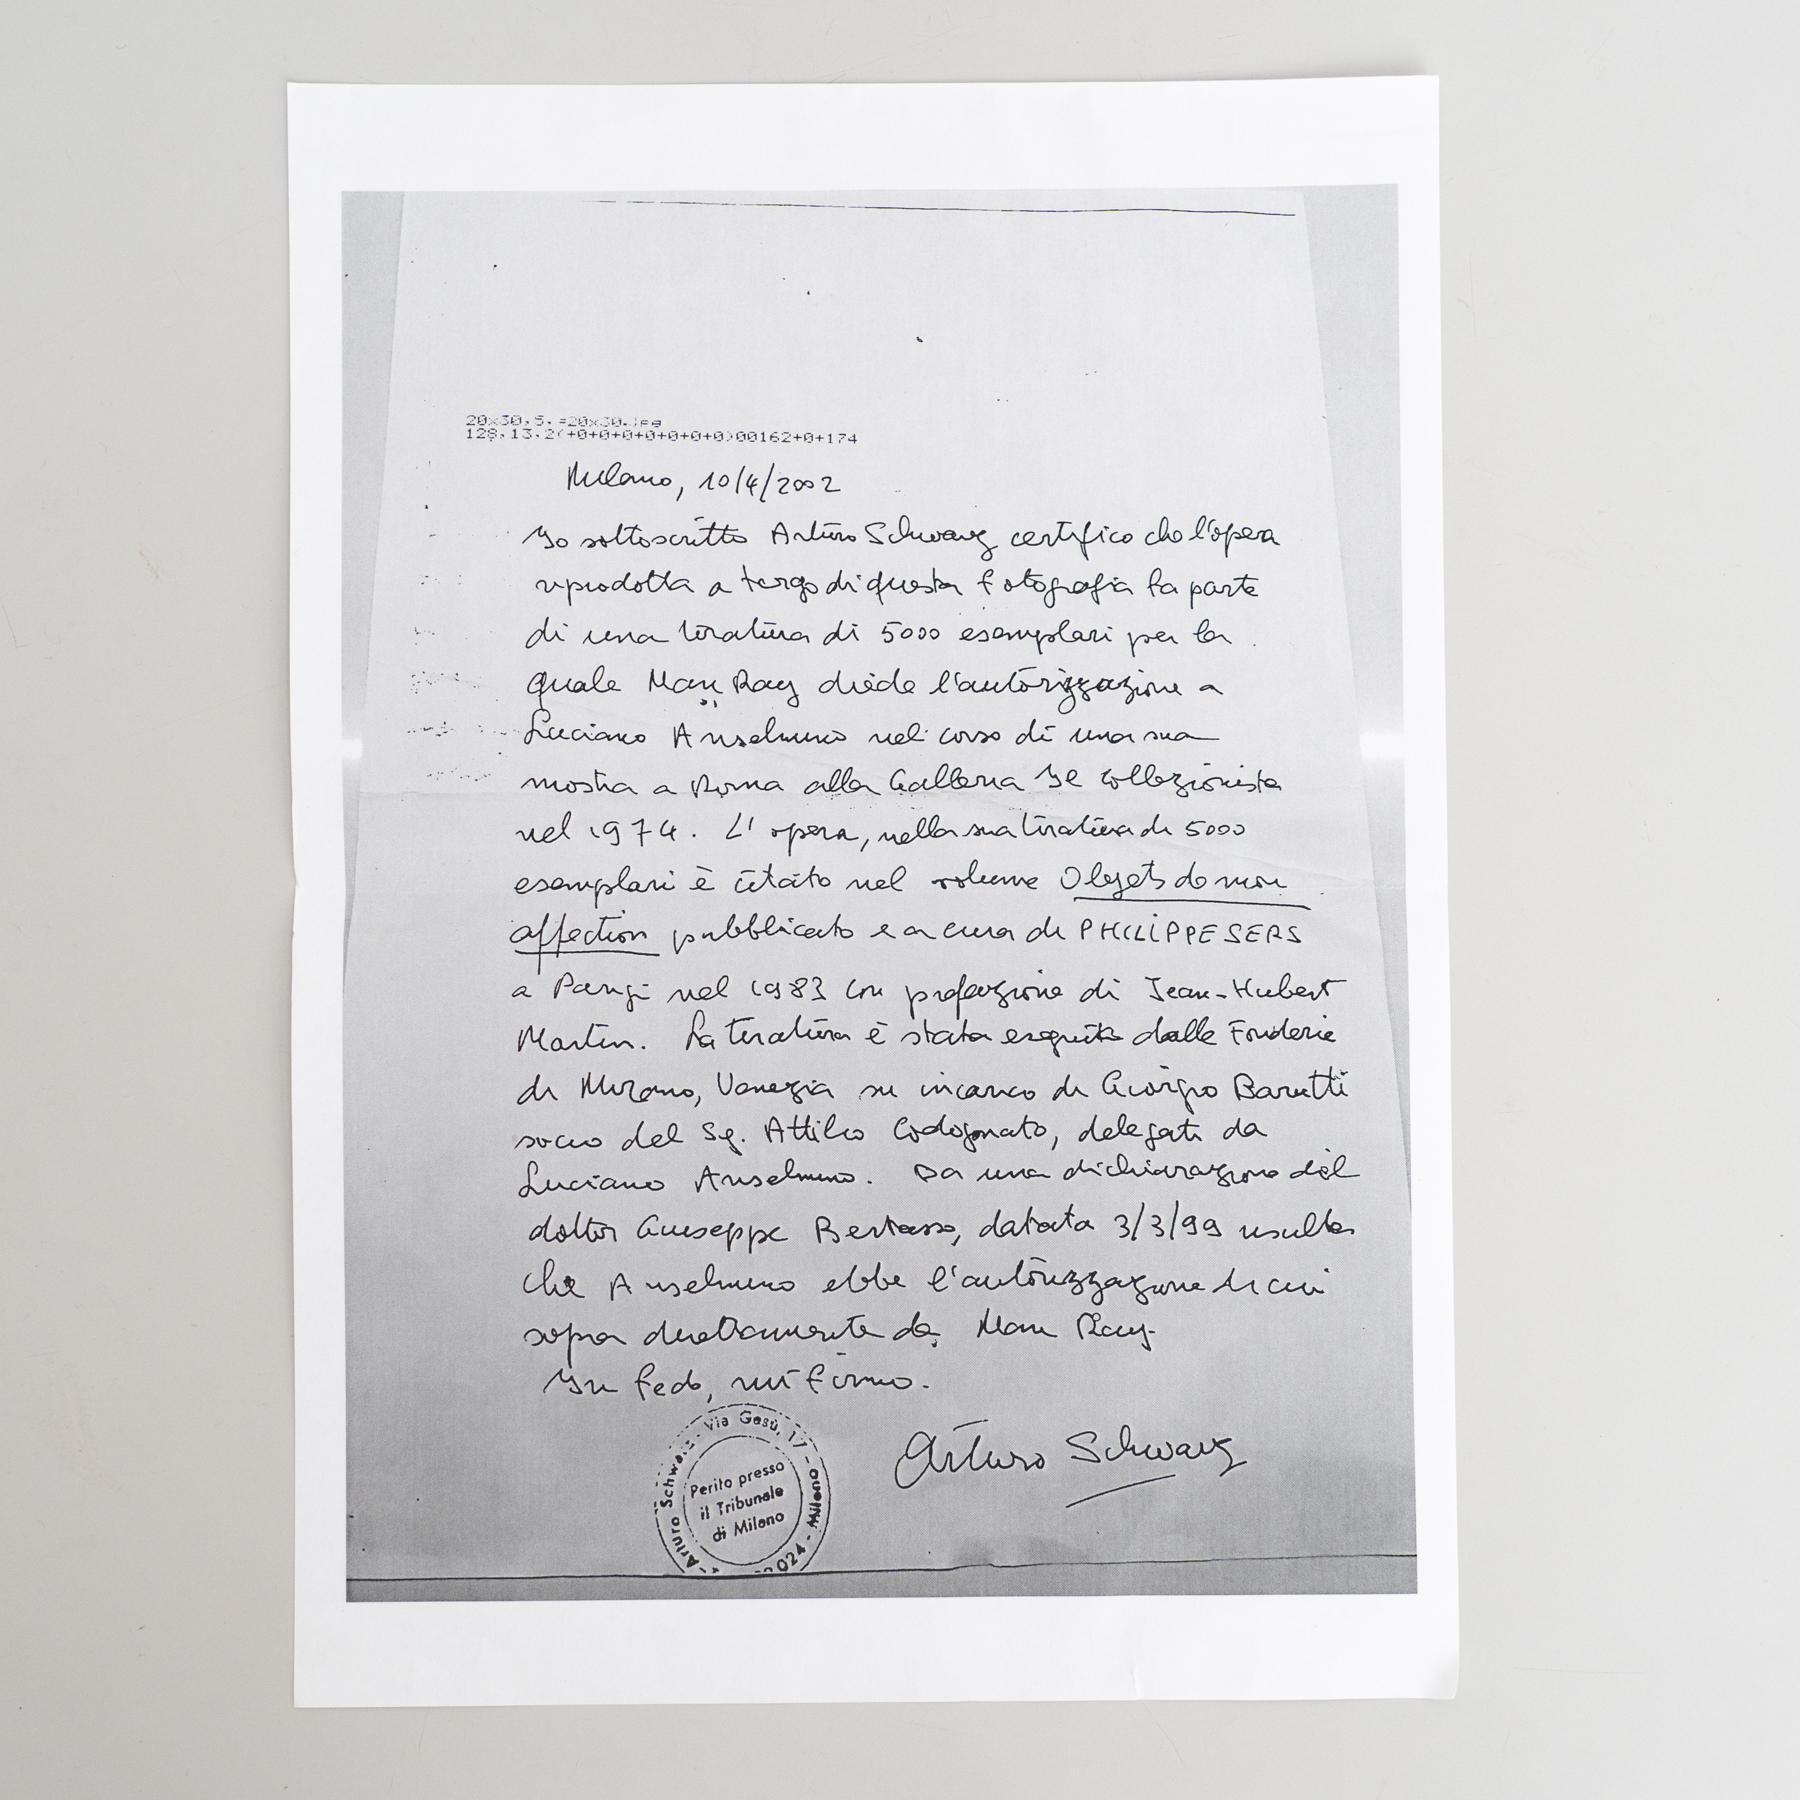 20x30.5.=20x30.jpg
128.13.2(+0+0+0+0+0+0+0)00162+0+174
Milano, 10/4/2002
Io sottoscritto Arturo Schwarz certifico che l'opera
riprodotta a tergo di questa fotografia fa parte
di una tiratura di 5000 esemplari per la
quale Man Ray diede l'autorizzazione a
Luciano Anselmino nel corso di una sua
mostra a Roma alla Galleria Il Collezionista
nel 1974. L'opera, nella sua tiratura di 5000
esemplari è citato nel volume Objets de mon
affection pubblicato e a cura di PHILIPPE SERS
a Parigi nel 1983 con prefazione di Jean-Hubert
Martin. La tiratura è stata eseguita dalle Fonderie
di Mirano, Venezia su incarico di Giorgio Barutti
socio del Sg. Attilio Codognato, delegati da
Luciano Anselmino. Da una dichiarazione del
dottor Giuseppe Bertasso, datata 3/3/99 risulta
che Anselmino ebbe l'autorizzazione di cui
sopra direttamente da Man Ray.
In fede, mi firmo.
Arturo Schwarz
Arturo Schwarz - Via Gesù, 17 - Milano
Perito presso
il Tribunale
di Milano